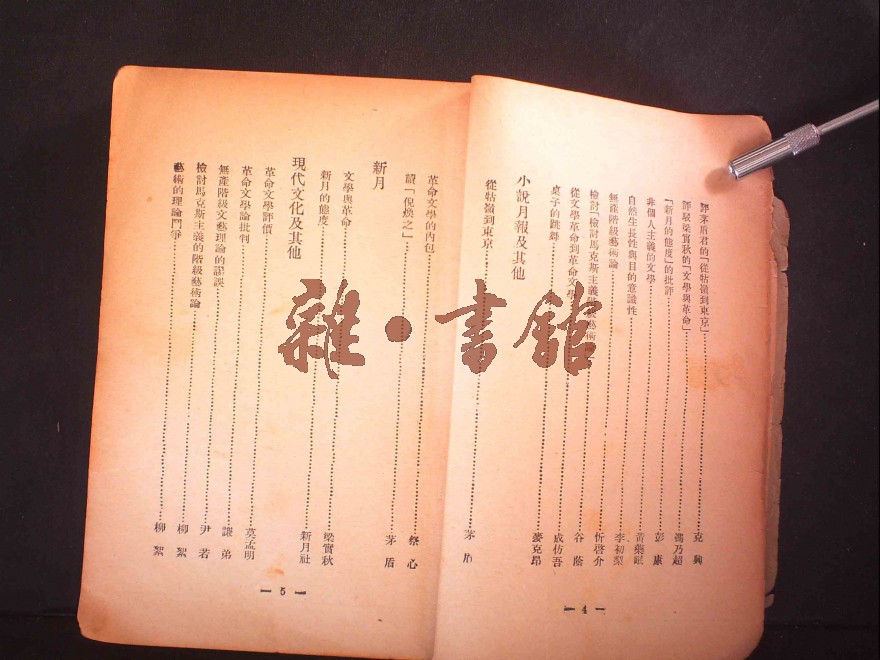 評茅盾君的「從牯嶺到東京」……克興
評駁梁實秋的「文學與革命」……馮乃超
「新月的態度」的批評……彭康
非個人主義的文學……黃藥眠
自然生長性與目的意識性……李初梨
無產階級藝術論……忻啓介
檢討「檢討馬克斯主義階級藝術……谷蔭
從文學革命到革命文學……成仿吾
桌子的跳舞……麥克昂
小說月報及其他
從牯嶺到東京……茅盾
— 4 —
革命文學的內包……祭心
讀「倪煥之」……茅盾
新月
文學與革命……梁實秋
新月的態度……新月社
現代文化及其他
革命文學評價……莫孟明
革命文學論批判……謙弟
無產階級文藝理論的謬誤……尹若
檢討馬克斯主義的階級藝術論……柳絮
藝術的理論鬥爭……柳絮
— 5 —
雜·書館